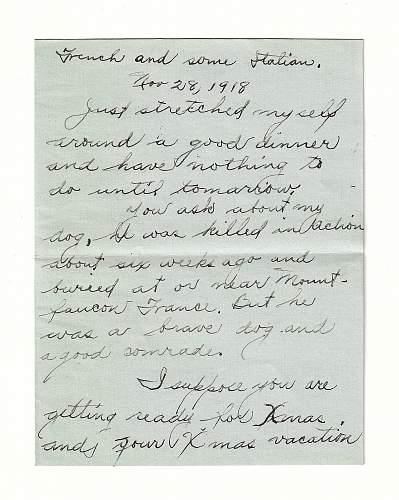 French and some Italian.
Nov 28, 1918
Just stretched myself
around a good dinner
and have nothing to
do until tomarrow.
You ask about my
dog, It was killed in action
about six weeks ago and
buried at or near Mount-
faucon France. But he
was a brave dog and
a good comrade.
I suppose you are
getting ready for Xmas
and your Xmas vacation